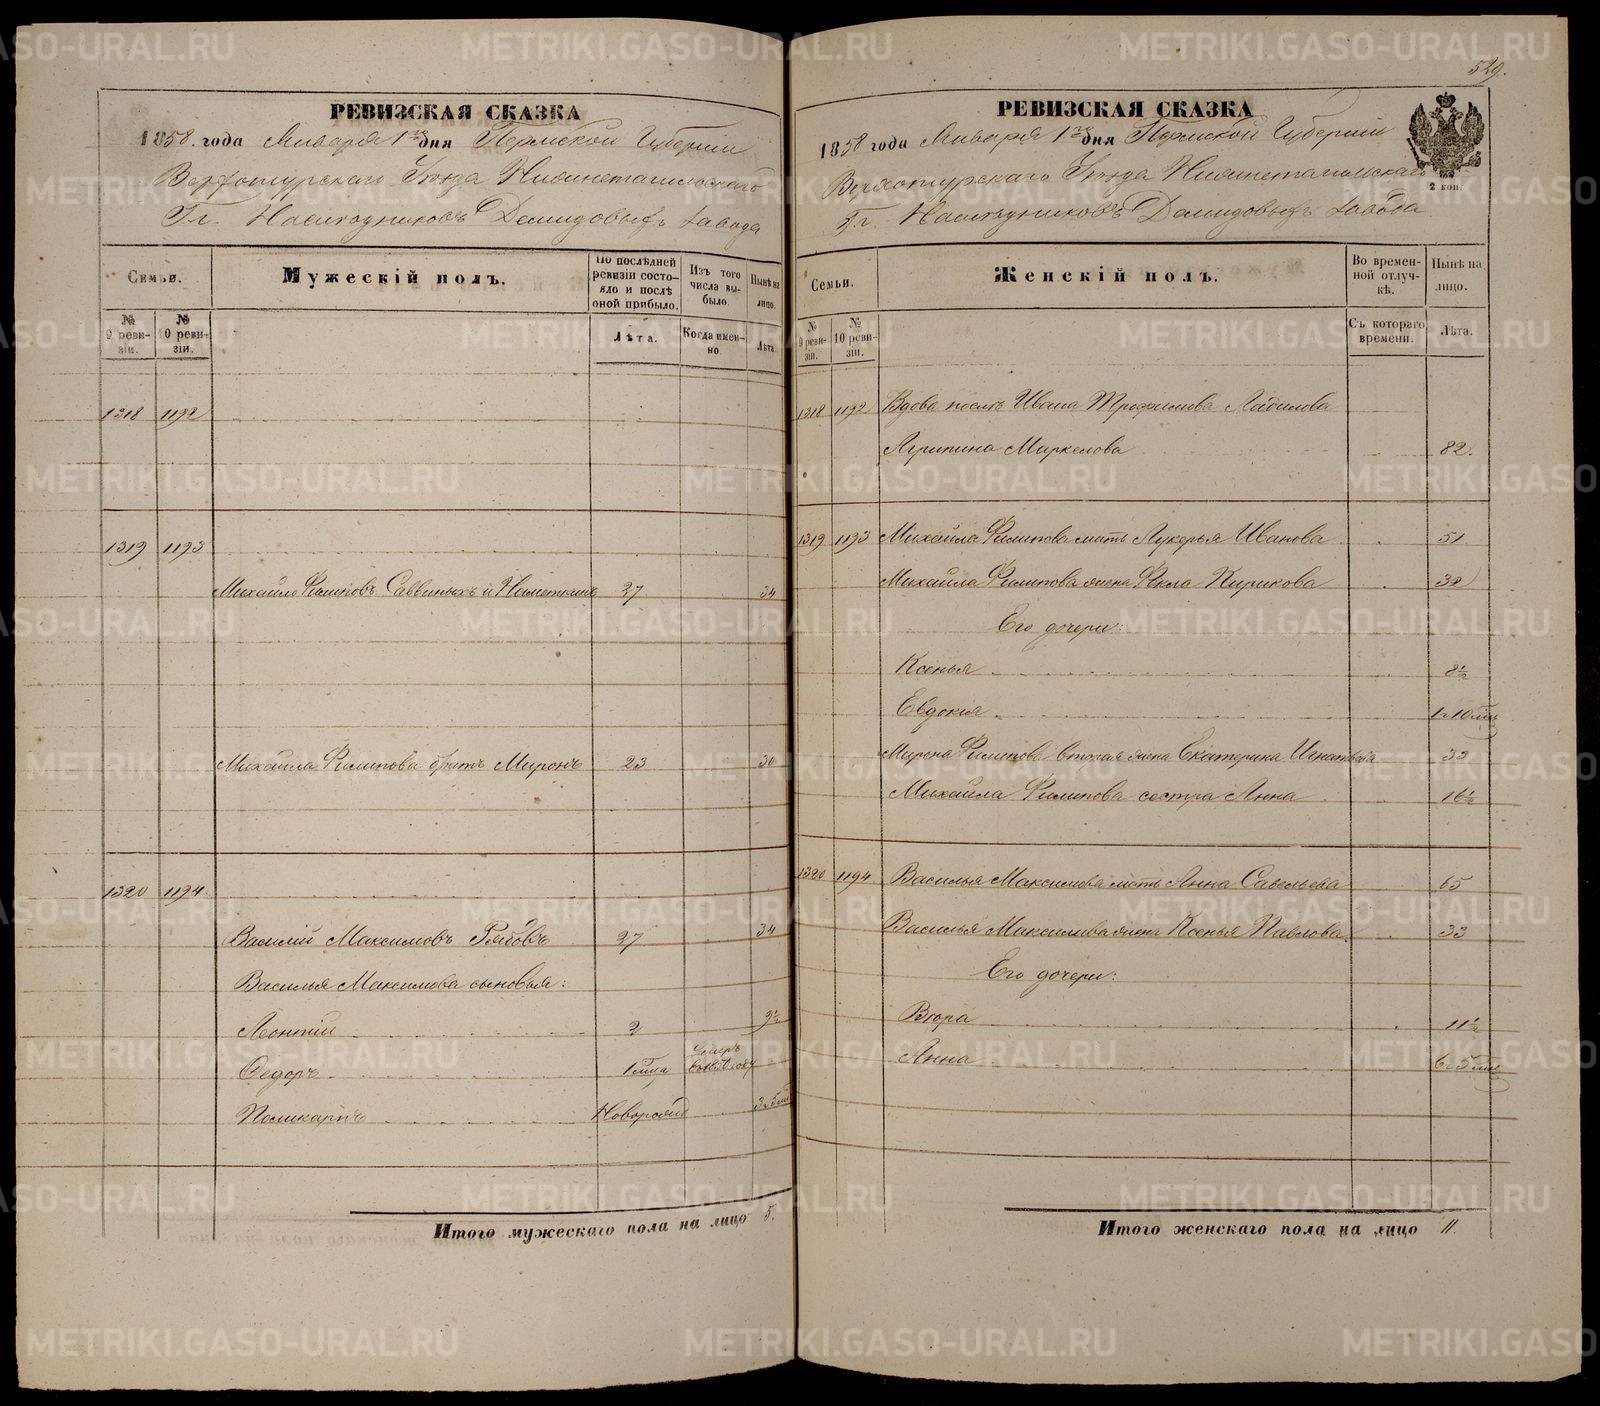 529.
РЕВИЗСКАЯ СКАЗКА
1858. года Января 1го дня Пермской Губерніи
Верхотурскаго Уѣзда Нижнетагильскаго
Гг. Наслѣдниковъ Демидовыхъ завода
Семьи.
Мужескій полъ.
По послѣдней ревизіи состояло и послѣ оной прибыло.
Изъ того числа выбыло.
Нынѣ на лицо.
№ 9 ревизіи.
№ 10 ревизіи.
Лѣта.
Когда именно.
Лѣта.
1318 1192
1319 1193
Михайло Филиповъ Саввиныхъ и Наметкинъ 27 34
Михайла Филипова братъ Миронъ 23 30
1320 1194
Василій Максимовъ Рябовъ 27 34
Василья Максимова сыновья:
Леонтій 2 9½
Федоръ 1 мѣсца
Поликарпъ Новорожд
Итого мужескаго пола на лицо 5.
РЕВИЗСКАЯ СКАЗКА
1858 года Января 1го дня Пермской Губерніи
2 коп.
Верхотурскаго Уѣзда Нижнетагильскаго
Гг. Наслѣдниковъ Демидовыхъ завода
Семьи.
Женскій полъ.
Во временной отлучкѣ.
Нынѣ на лицо.
№ 9 ревизіи.
№ 10 ревизіи.
Съ котораго времени.
Лѣта.
1318 1192 Вдова послѣ Ивана Трофимова
Агрипина Маркелова 82.
1319 1193 Михайла Филипова мать Лукерья Иванова 51
Михайла Филипова жена Фекла Кирикова 32
Его дочери:
Ксенья 8½
Евдокія 1 10 мѣс
Мирона Филипова вторая жена Екатерина Игнатьева 33
Михайла Филипова сестра Анна 16½
1320 1194 Василья Максимова мать Анна Савельева 65
Василья Максимова жена Ксенья Павлова 33
Его дочери:
Вѣра 11½
Анна 6 5 мѣс
Итого женскаго пола на лицо 11.
METRIKI.GASO-URAL.RU